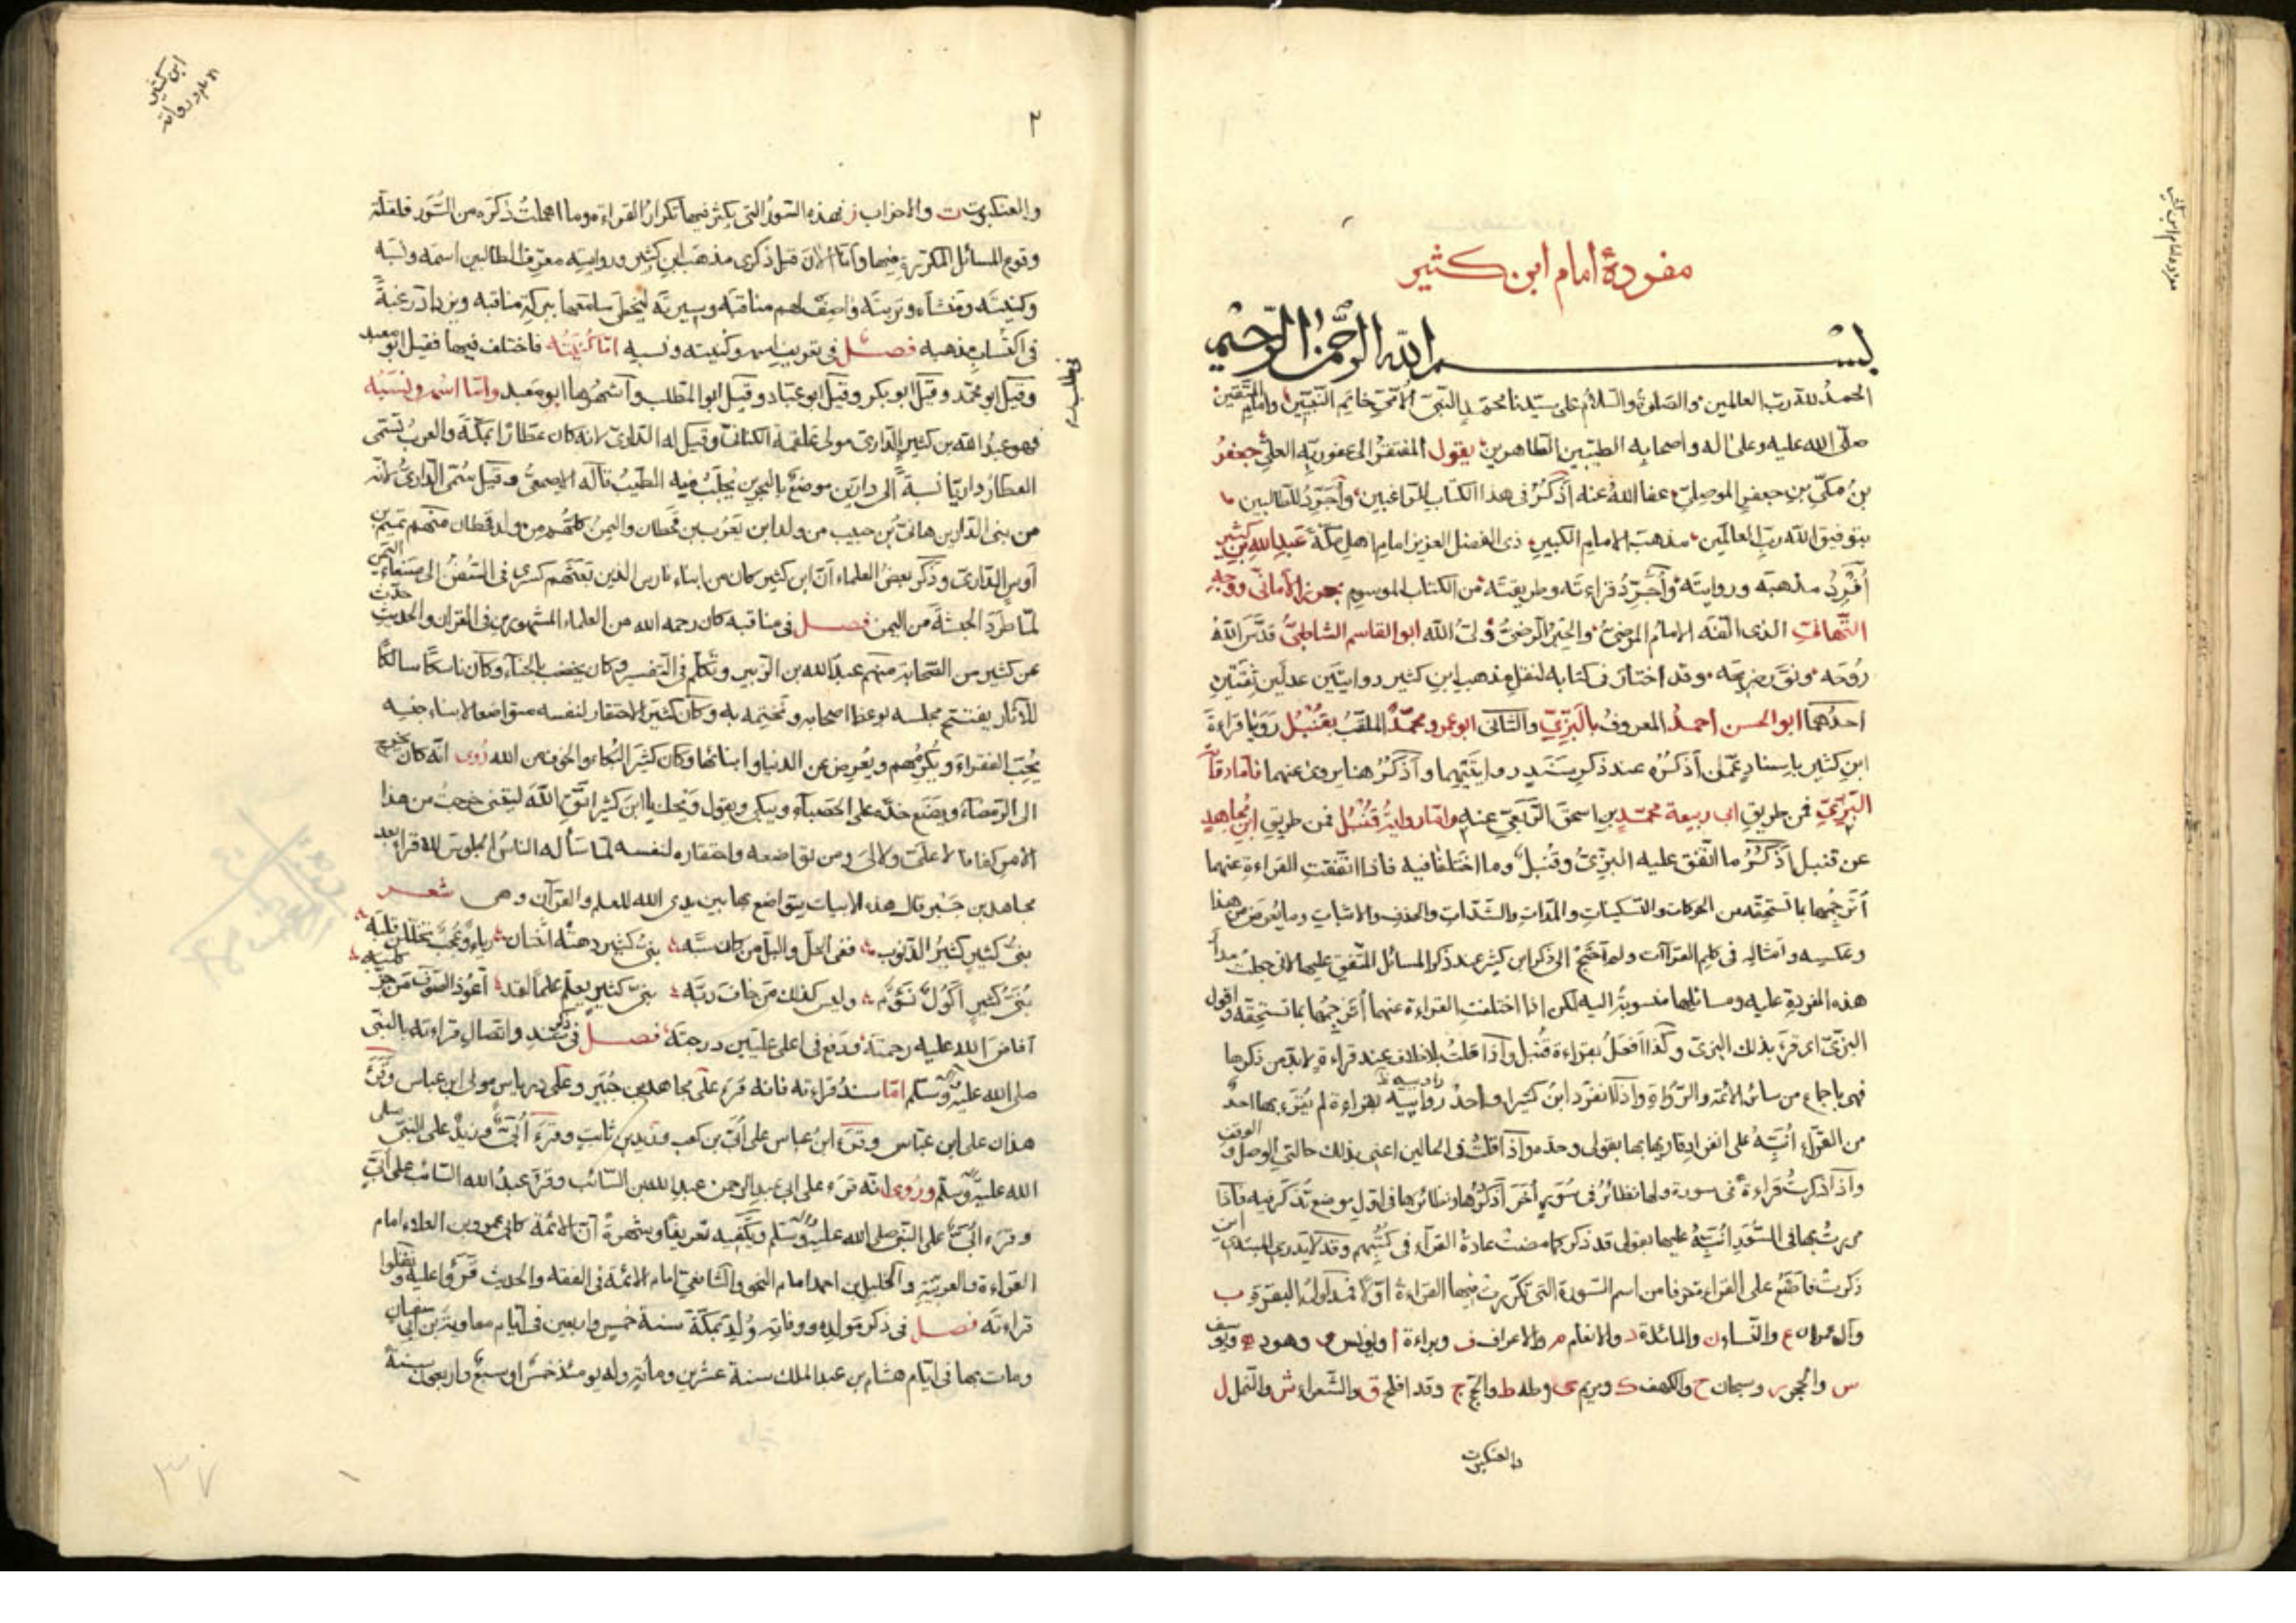 مفردهٔ امام ابن كثير
بسم الله الرحمن الرحيم
الحمد لله رب العالمين والصلوة والسلام على سيدنا محمد النبي الأمي خاتم النبيين وامام المتقين
صلى الله عليه وعلى اله واصحابه الطيبين الطاهرين يقول المفتقر الى عفو ربه العلي جعفر
بن مكي بن جعفر الموصلي عفا الله عنه أذكر في هذا الكتاب للراغبين وأجرد للطالبين
بتوفيق الله رب العالمين مذهب الامام الكبير ذي الفضل العزيز امام اهل مكة عبد الله بن كثير
أفرد مذهبه وروايته وأجرد قراءته وطريقته من الكتاب الموسوم بحرز الأماني ووجه
التهاني الذي الفه الامام المرضي والحبر الرضي ولي الله ابو القاسم الشاطبي قدس الله
روحه ونور ضريحه وقد اختار في كتابه لنقل مذهب ابن كثير روايتين عدلين ثقتين
احدهما ابو الحسن احمد المعروف بالبزي والثاني ابو عمرو محمد الملقب بقنبل رويا قراءة
ابن كثير باسناد عمن أذكره عند ذكر سند روايتيهما وأذكر هنا من روى عنهما فاما رواية
البزي فمن طريق ابي ربيعة محمد بن اسحق الربعي عنه واما رواية قنبل فمن طريق ابن مجاهد
عن قنبل أذكر ما اتفق عليه البزي وقنبل وما اختلفا فيه فاذا اتفقت القراءة عنهما
أترجمها بما تستحقه من الحركات والتسكينات والمدات والشدات والحذف والاثبات وما يعرض من هذا
وعكسه وامثاله في كلم القراآت ولم أحتج الى ذكر ابن كثير عند ذكر المسائل المتفق عليها لاني جعلت مدار
هذه المفردة عليه ومسائلها منسوبة اليه لكن اذا اختلفت القراءة عنهما أترجمها بما تستحقه واقول
البزي اي قرء بذلك البزي وكذا أفعل بقراءة قنبل واذا قلت بلا خلاف عند قراءة لا بد من ذكرها
فهي باجماع من سائر الأئمة والرواة واذا انفرد ابن كثير او احد راوييه بقراءة لم يقرء بها احد
من القراء أنبه على انفراد قاريها بها بقولي وحده واذا قلت في الحالين اعني بذلك حالتي الوصل والوقف
واذا ذكرت قراءة في سورة ولها نظائر في سور أخر أذكرها ونظائرها في اول موضع تذكر فيه فاذا
مررت بها في السور أنبه عليها بقولي قد ذكر كما مضت عادة القراء في كتبهم وقد لا يدري المبتدئ اين
ذكرت فاضع على القراءة حرفا من اسم السورة التي تكررت فيها القراءة اولا فمدلول البقرة ب
وآل عمران ع والنساء ن والمائدة د والانعام م والاعراف ف وبراءة ا ويونس و وهود ه ويوسف
س والحجر ر وسبحان ح والكهف ك ومريم ى وطه ط والحج ج وقد افلح ق والشعراء ش والنمل ل
والعنكبوت
مفرده امام ابن كثير
٢
ابن كثير
والعنكبوت ت والاحزاب ز فهذه السور التي يكثر فيها تكرار القراءة وما اهملت ذكره من السور فلقلة
وقوع المسائل المكررة فيها وانا الآن قبل ذكري مذهب ابن كثير وروايته معرف للطالبين اسمه ونسبه
وكنيته ومنشاءه وتربته واصف لهم مناقبه وسيرته ليحظى سامعها ببركة مناقبه ويزداد رغبة
في اكتساب مذهبه فصل في تعريف اسمه وكنيته ونسبه اما كنيته فاختلف فيها فقيل ابو معبد
وقيل ابو محمد وقيل ابو بكر وقيل ابو عباد وقيل ابو المطلب وأشهرها ابو معبد واما اسمه ونسبه
فهو عبد الله بن كثير الداري مولى علقمة الكناني وقيل له الداري لانه كان عطارا بمكة والعرب تسمى
العطار داريا نسبة الى دارين موضع بالبحرين يجلب فيه الطيب قاله الاصمعي وقيل سمي الداري لانه
من بني الدار بن هانئ بن حبيب من ولد ابن يعرب بن قحطان واليمن كلهم من ولد قحطان منهم تميم بن
أوس الداري وذكر بعض العلماء ان ابن كثير كان من ابناء فارس الذين بعثهم كسرى في السفن الى صنعاء اليمن
لما طرد الحبشة من اليمن فصل في مناقبه كان رحمه الله من العلماء المشهورين في القران والحديث حدث
عن كثير من الصحابة منهم عبد الله بن الزبير وتكلم في التفسير وكان يخضب بالحناء وكان ناسكا سالكا
للآثار يفتتح مجلسه بوعظ اصحابه ويختمه به وكان كثير الاحتقار لنفسه متواضعا لابناء جنسه
يحب الفقراء ويكرمهم ويعرض عن الدنيا وابنائها وكان كثير البكاء والخوف من الله روى انه كان يخرج
الى الرمضاء ويضع خده على الحصباء ويبكي ويقول ويحك يا ابن كثير اتق الله ليتني خرجت من هذا
الامر كفافا لا علي ولا لي ومن تواضعه واحتقاره لنفسه لما سأله الناس الجلوس للاقراء بعد
مجاهد بن جبير قال هذه الابيات يتواضع بها بين يدي الله للعلم والقرآن وهي شعر
بني كثير كثير الذنوب ففي الحل والبل من كان سبه بني كثير دهته اثنتان رياء وعجب يخالطن قلبه
بني كثير أكول نؤوم وليس كذلك من خاف ربه بني كثير يعلم علما لقد أعوذ الصوف من جز كلبه
افاض الله عليه رحمته ورفع في اعلى عليين درجته فصل في ذكر سنده واتصال قراءته بالنبي
صلى الله عليه وآله وسلم اما سند قراءته فانه قرء على مجاهد بن جبير وعلى درباس مولى ابن عباس وقرء
هذان على ابن عباس وقرء ابن عباس على أبي بن كعب وزيد بن ثابت وقرء أبي وزيد على النبي صلى
الله عليه وآله وسلم وروى انه قرء على ابي عبد الرحمن عبد الله بن السائب وقرء عبد الله السائب على أبي
وقرء أبي على النبي صلى الله عليه وآله وسلم ويكفيه تعريفا وشهرة أن الأئمة كابي عمرو بن العلاء امام
القراءة والعربية والخليل بن احمد امام النحو والشافعي امام الأئمة في الفقه والحديث قرؤا عليه ونقلوا
قراءته فصل في ذكر مولده ووفاته ولد بمكة سنة خمس واربعين في ايام معاوية بن ابي سفيان
ومات بها في ايام هشام بن عبد الملك سنة عشرين ومائة وله يومئذ خمس او سبع واربعون سنة
٣٧